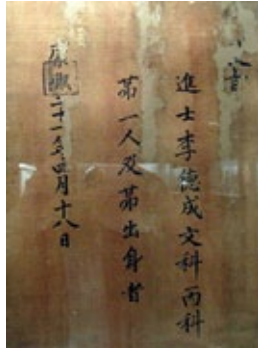 旨
進士李德成文科丙科
苐一人及苐出身者
康熙二十一年四月十八日